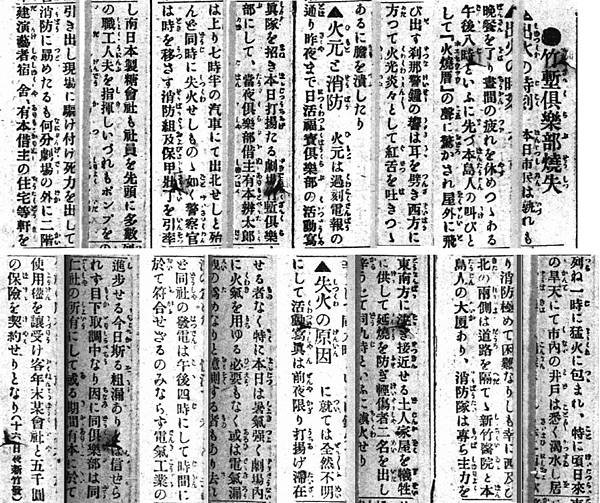 ●竹塹倶樂部燒失
▲出火の時刻 本日市民は孰れも
晩餐を了へ晝間の疲れを休めつゝある
午後八時といふに先づ本島人の叫びと
して『火燒厝』の聲に驚かされ屋外に飛
び出す刹那警鐘の響は耳を劈き西方に
火炎々として紅舌を吐きつゝ
あるに膽を潰したり
▲火元と消防 火元は過刻電報の
通り昨夜まで日活福寶倶樂部の活動寫
眞隊を招き本日打揚たる劇場竹塹倶樂
部にして、當夜倶樂部借主有本耕太郎
は上り七時半の汽車にて出北せしと殆
んど同時に失火せしものゝ如く警察官
は時を移さず消防組及保甲壯丁を引率
し南日本製糖會社も社員を先頭に多數
の職工人夫を指揮しいづれもポンプを
引き出し現場に駆け付け死力を出して
消防に勗めたるも何分劇場の外に二階
建演藝者宿舍、有本借主の住宅等軒を
列ね一時に猛火に包まれ、特に頃日來
の旱天にて市内の井戸は悉く渇水し居
り消防極めて困難なりしも幸に西及
北の兩側は道路を隔てゝ新竹醫院と本
島人の大廈あり、消防隊は專ら主力を
東南方に注ぎ接近せる土人家屋を犠牲
に供して延燒を防ぎ輕傷者二名を出し
辛うして同九時といふに鎭火せり
▲失火の原因 に就ては全然不明
にして活動寫眞は前夜限り打揚げ滯在
せる者なく特に本日は暑氣強く劇場内
に火氣を用ゆる必要もなく或は電氣漏
洩の爲めなりと臆測する者もあり去れ
ど同社の發電は午後四時にして時間に
於て符合せざるのみならず電氣工業の
進歩せる今日斯る粗漏ありとは信せら
れず目下取調中なり因に同倶樂部は同
仁社の所有にして或る期間有本に於て
使用權を讓受け客年末某會社と五千圓
の保險を契約せりとなり(十六日代新竹發)